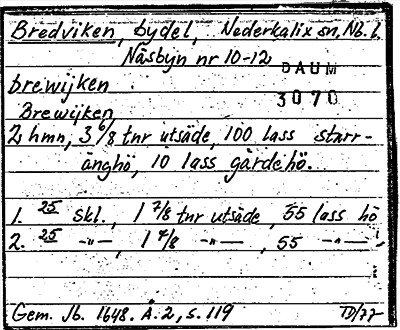 Bredviken, bydel, Nederkalix sn, Nb. l.
Näsbyn nr 10-12
DAUM
3070
brewijken
Brewijken,
2 hmn, 3 6/8 tnr utsäde, 100 lass starr-
änghö, 10 lass gärdehö.
1. 25 skl., 1 7/8 tnr utsäde, 55 lass hö
2. 25 -"-, 1 7/8 -"-, 55 -"-
Gem. Jb. 1648. Å. 2, s. 119